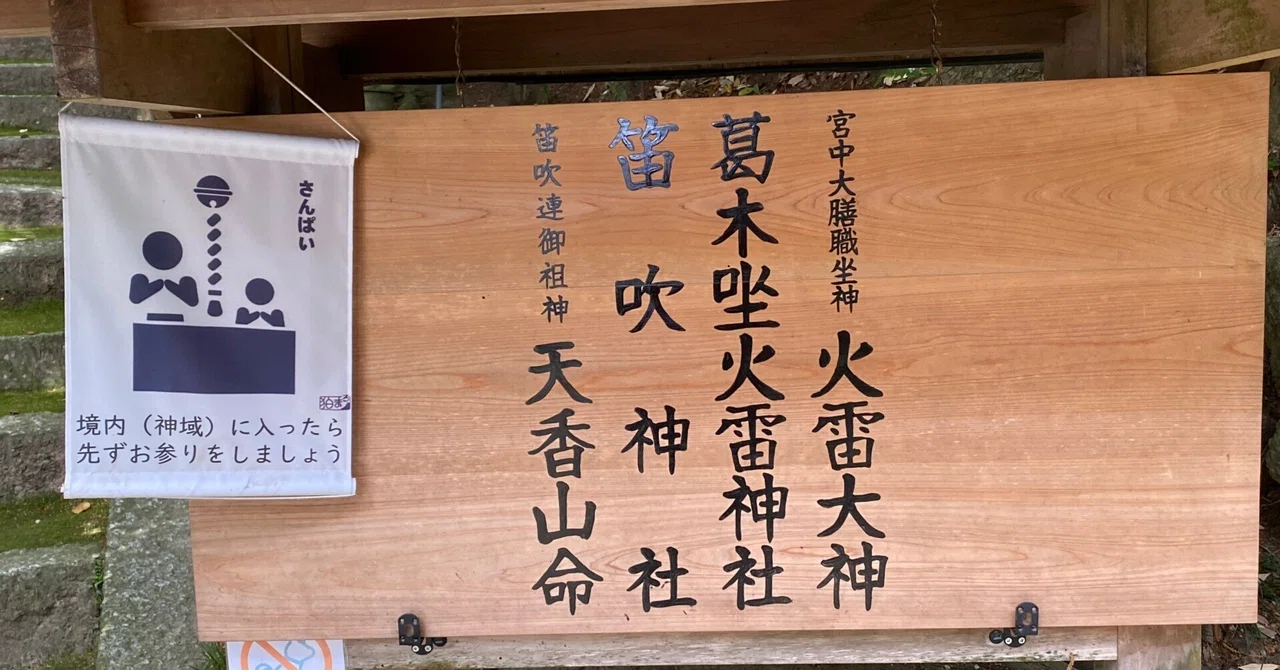 宮中大膳職坐神 火雷大神
葛木唑火雷神社
笛吹神社
笛吹連御祖神 天香山命
さんぱい
境内（神域）に入ったら
先ずお参りをしましょう